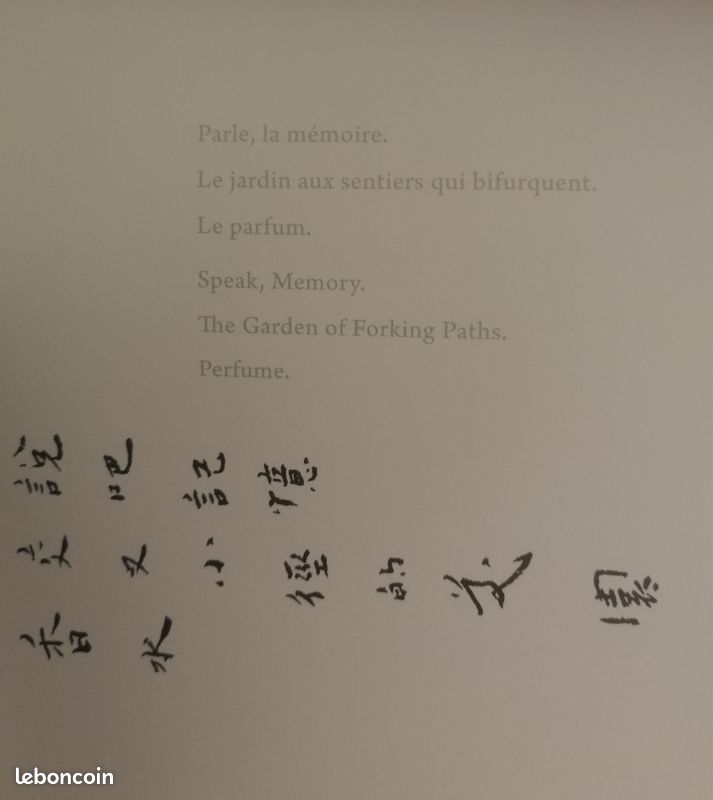 Parle, la mémoire.
Le jardin aux sentiers qui bifurquent.
Le parfum.
Speak, Memory.
The Garden of Forking Paths.
Perfume.
說吧記憶
交叉小徑的花園
香水
leboncoin